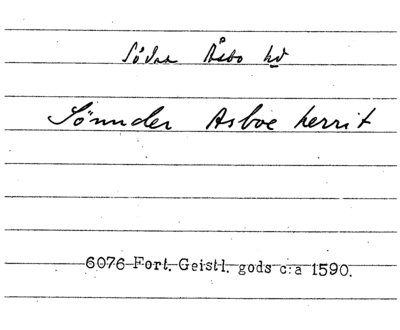 Södra Åsbo hd
Sönnder Asboe herrit
6076 Fort. Geistl. gods c:a 1590.